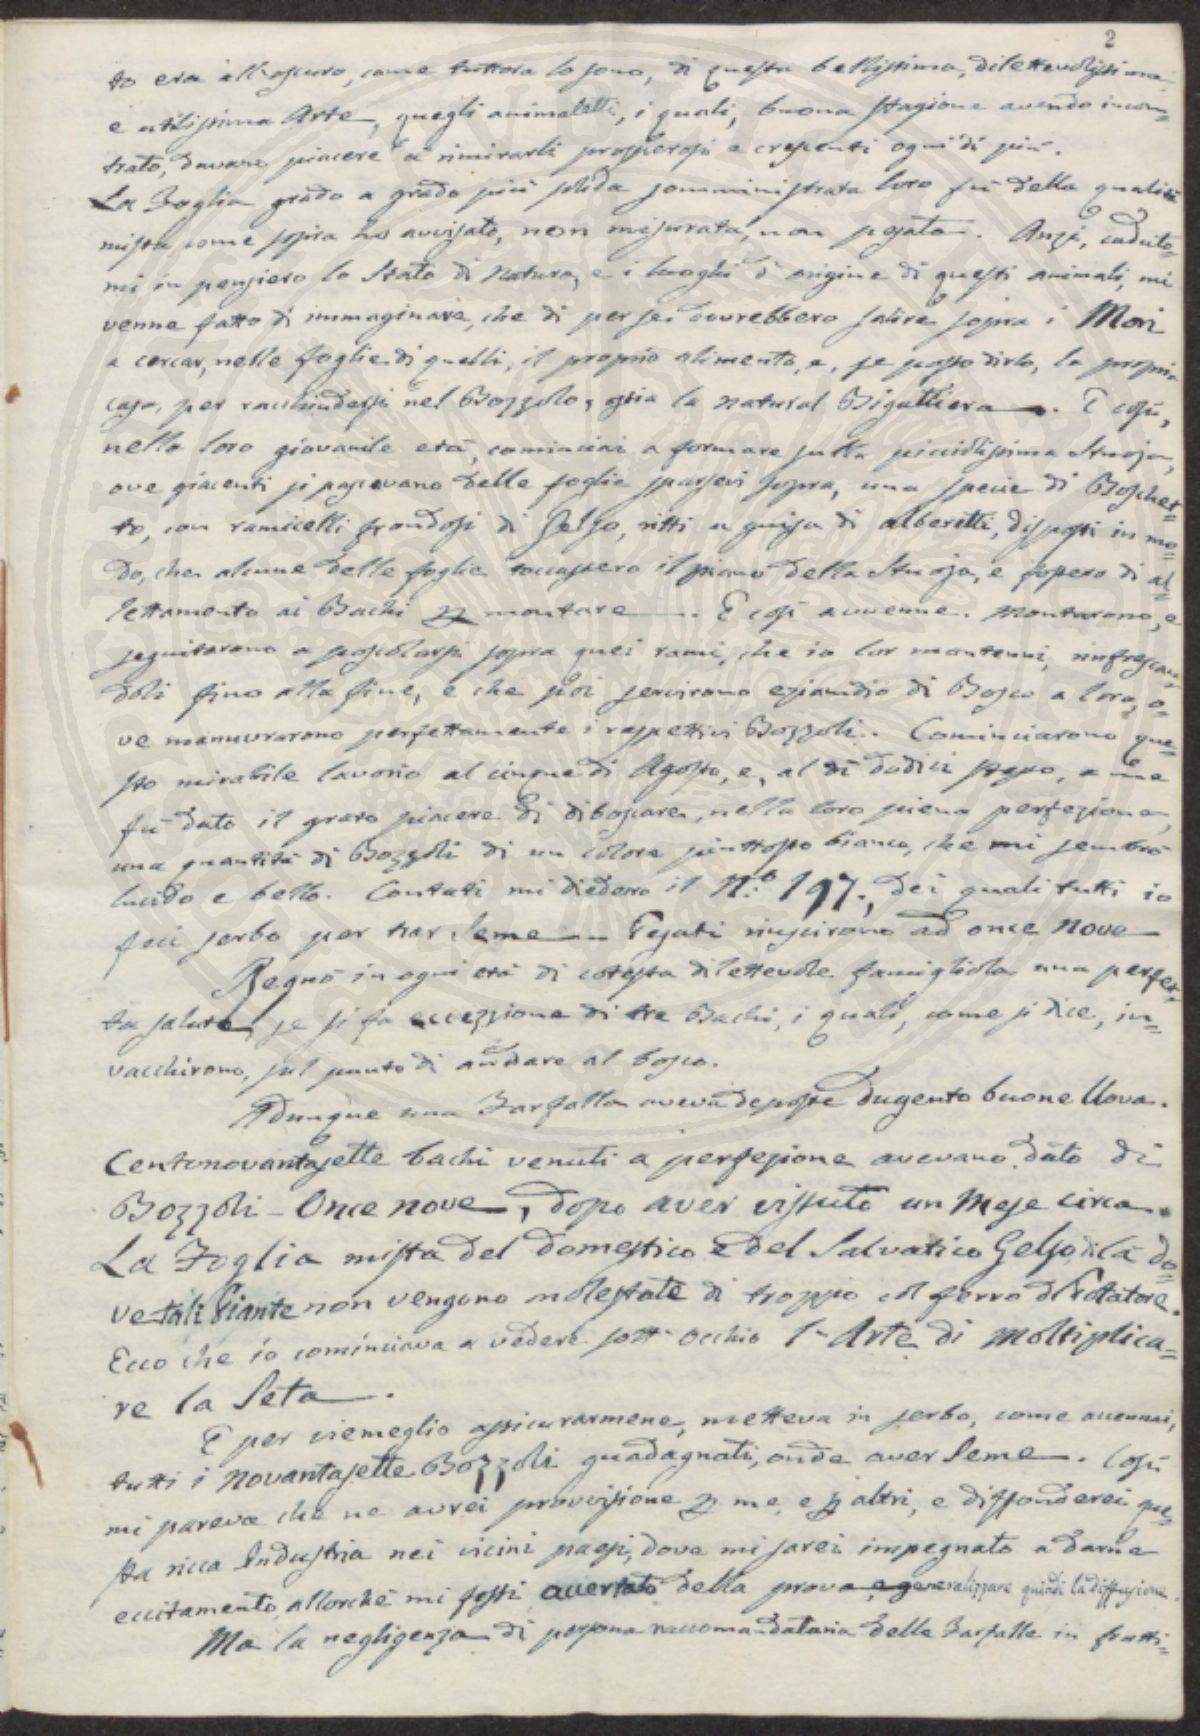 2
to era all'oscuro, come tuttora lo sono, di questa bellissima, dilettevolissima
e utilissima Arte, quegli animaletti, i quali, buona stagione avendo incon=
trato, davane piacere a rimirarli prosperosi e crescenti ogni dì più.
La Foglia grado a grado più solida somministrata loro fù della qualità
mista, come sopra ho avvisato, non misurata, non pesata. Anzi, caduto=
mi in pensiero lo Stato di Natura, e i luoghi d'origine di questi animali, mi
venne fatto di immaginare, che di per se dovrebbero salire sopra i Mori
a cercar, nelle foglie di quelli, il proprio alimento, e, se posso dirlo, la propria
casa, per racchiudersi nel Bozzolo, ossia la natural Bigattiera. E così,
nella loro giovanile età, cominciai a formare sulla piccolissima Stuoja,
ove giacenti si pascevano delle foglie sparsevi sopra, una specie di Boschet=
to, con ramicelli frondosi di Gelso, ritti a guisa di alberetti, disposti in mo=
do, che alcune delle foglie toccassero il piano della Stuoja, e fossero di al=
lettamento ai Bachi p montare. E così avvenne. Montarono, e
seguitarono a pascolarsi sopra quei rami, che io lor mantenni, rinfrescan=
doli fino alla fine, e che poi servirono eziandio di Bosco a loro, o=
ve manuvrarono perfettamente i rispettivi Bozzoli. Cominciarono que=
sto mirabile lavorio al cinque di Agosto, e, al dì dodici stesso, a me
fù dato il grato piacere di diboscare, nella loro piena perfezione,
una quantità di Bozzoli di un colore piuttosto bianco, che mi sembrò
lucido e bello. Contati mi diedero il N.º 197., dei quali tutti io
feci serbo per trar Seme. Pesati riuscirono ad once Nove
Regnò in ogni età di cotesta dilettevole famigliola una perfet=
ta salute, se si fa eccezzione di tre Bachi, i quali, come si dice, in=
vacchirono, sul punto di andare al bosco.
Adunque una Farfalla aveva deposte dugento buone Uova.
Centonovantasette bachi venuti a perfezione avevano dato di
Bozzoli - Once nove, dopo aver vissuto un Mese circa.
La Foglia mista del domestico e del Salvatico Gelso, di là do=
ve tali Piante non vengono molestate di troppo col ferro del Potatore.
Ecco che io cominciava a vedere sott'occhio l'Arte di moltiplica=
re la Seta.
E per viemeglio assicurarmene, metteva in serbo, come accennai,
tutti i Novantasette Bozzoli guadagnati, onde aver Seme. Così
mi pareva che ne avrei provvisione p me, e p altri, e diffonderei que=
sta ricca Industria nei vicini paesi, dove mi sarei impegnato a darne
eccitamento, allorchè mi fossi accertato della prova, e generalizzare quindi la diffusione.
Ma la negligenza di persona raccomandataria delle Farfalle in frutti=